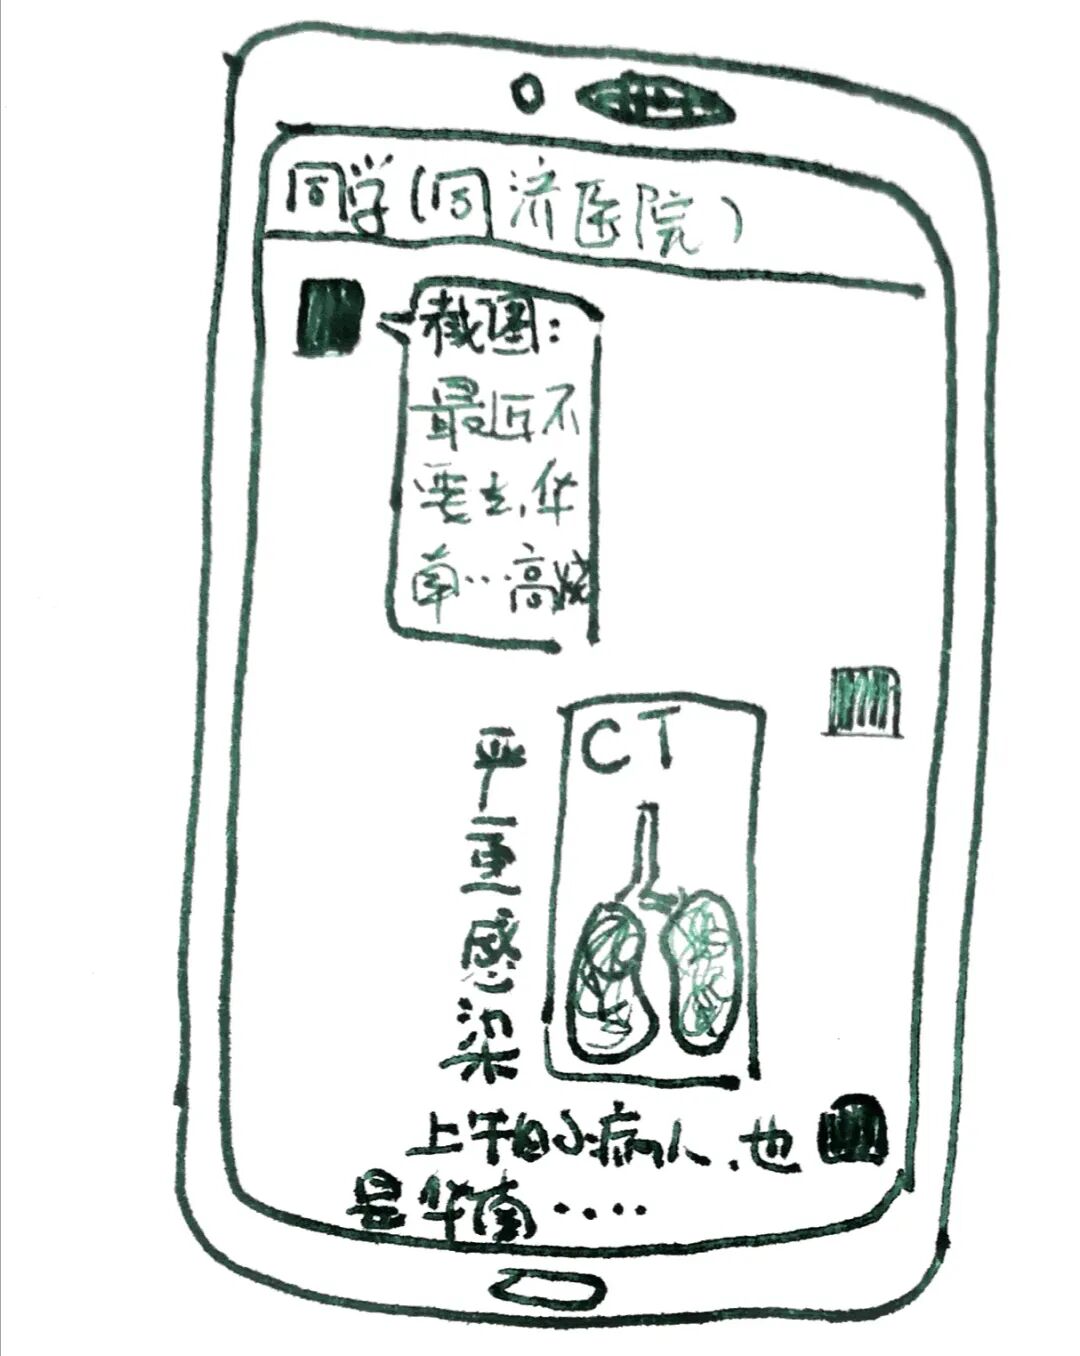 同学(同济医院)
截图:
最近不
要去,华
南…高烧
CT
严重感染
上午的小病人,也
是华南……